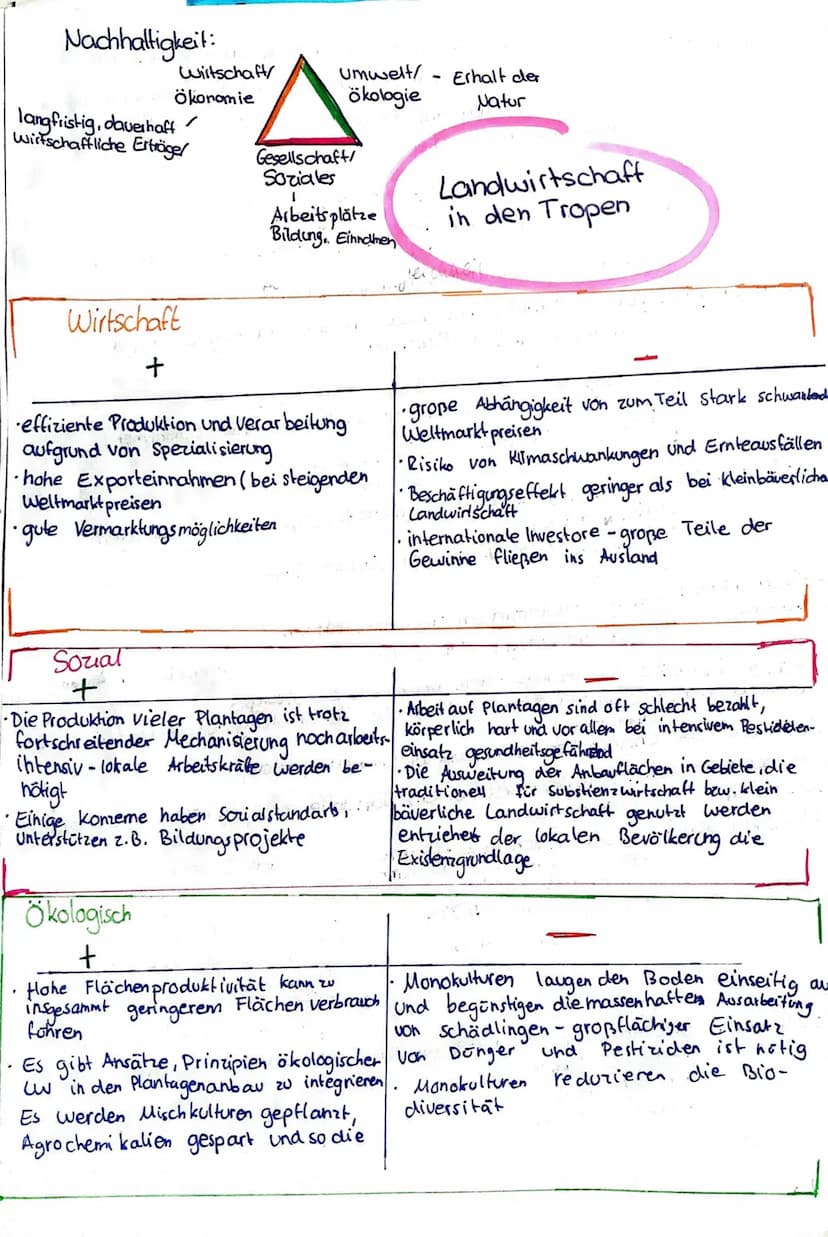 Nachhaltigkeit:
Wirtschaft/
Ökonomie
Umwelt/ - Erhalt der
Ökologie Natur
langfristig, dauerhaft
wirtschaftliche Erträge/
Gesellschaft/
Soziales
Arbeitsplätze
Bildung, Einnahmen
Landwirtschaft
in den Tropen
Wirtschaft
+
-
·effiziente Produktion und Verarbeitung
aufgrund von Spezialisierung
·hohe Exporteinnahmen (bei steigenden
Weltmarktpreisen
·gute Vermarktungsmöglichkeiten
·große Abhängigkeit von zum Teil stark schwankend
Weltmarktpreisen
·Risiko von Klimaschwankungen und Ernteausfällen
·Beschäftigungseffekt geringer als bei kleinbäuerliche
Landwirtschaft
·internationale Investore - große Teile der
Gewinne fließen ins Ausland
Sozial
+
-
·Die Produktion vieler Plantagen ist trotz
fortschreitender Mechanisierung noch arbeits-
intensiv - lokale Arbeitskräfte werden be-
nötigt
·Einige Konzerne haben Sozialstandarts,
unterstützen z.B. Bildungsprojekte
·Arbeit auf Plantagen sind oft schlecht bezahlt,
körperlich hart und vor allem bei intensivem Pestiziden-
einsatz gesundheitsgefährdend
·Die Ausweitung der Anbauflächen in Gebiete, die
traditionell für Substienzwirtschaft bzw. klein
bäuerliche Landwirtschaft genutzt werden
entziehet der lokalen Bevölkerung die
Existenzgrundlage
Ökologisch
+
-
· Hohe Flächenproduktivität kann zu
insgesammt geringerem Flächenverbrauch
führen
· Es gibt Ansätze, Prinzipien ökologischer
LW in den Plantagenanbau zu integrieren
Es werden Mischkulturen gepflanzt,
Agrochemikalien gespart und so die
· Monokulturen laugen den Boden einseitig au
und begünstigen die massenhaften Ausarbeitung
von schädlingen - großflächiger Einsatz
von Dünger und Pestiziden ist nötig
· Monokulturen reduzieren die Bio-
diversität